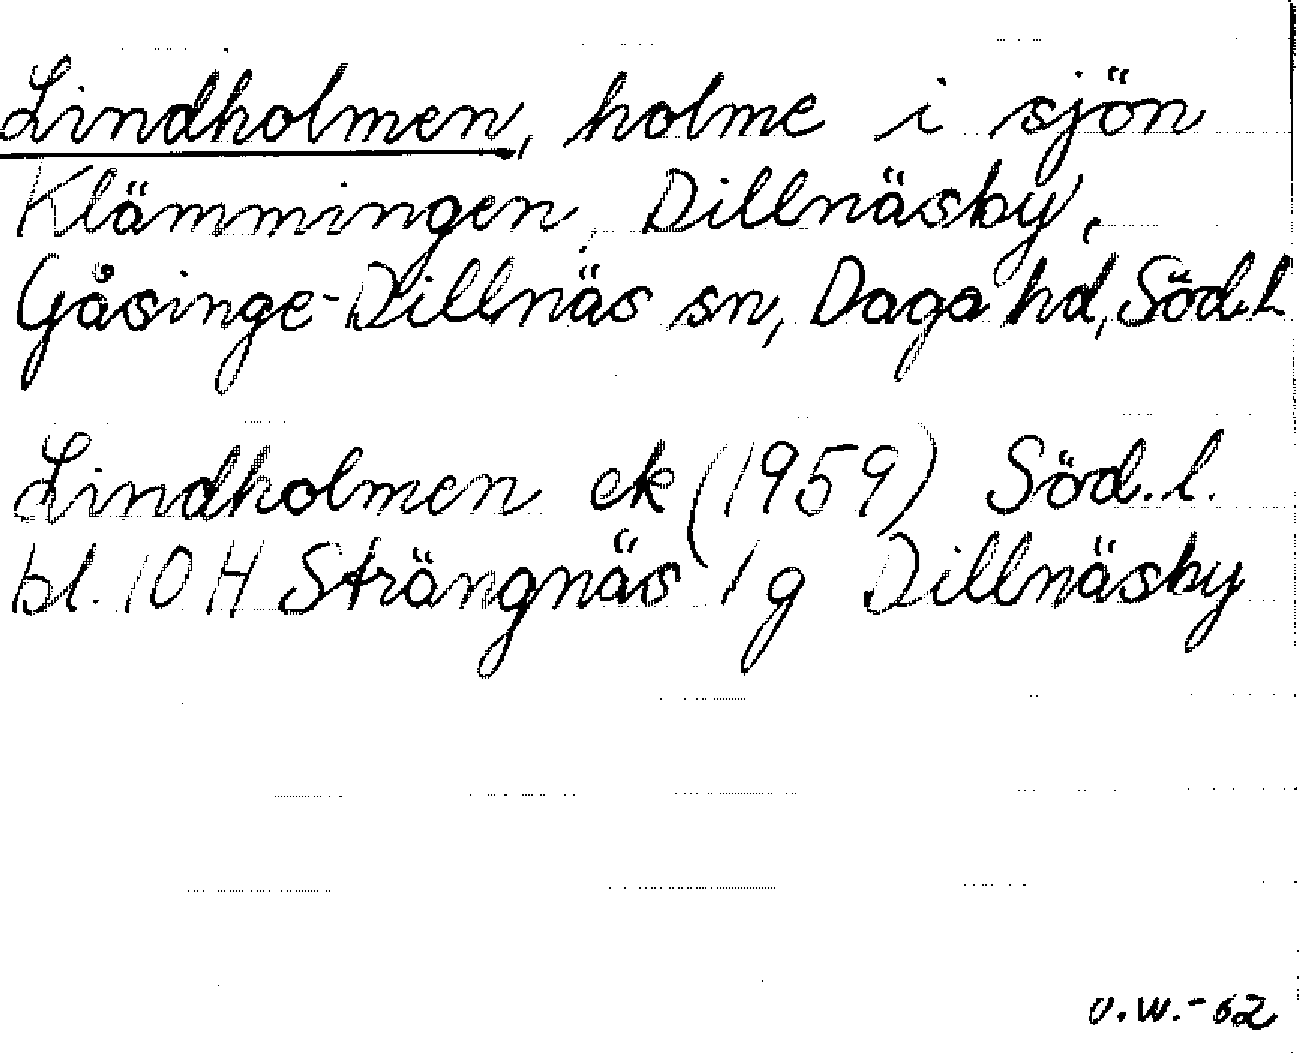 Lindholmen, holme i sjön
Klämmingen, Dillnäsby,
Gåsinge-Dillnäs sn, Daga hd, Söd.l.
Lindholmen ek (1959) Söd.l.
bl. 10 H Strängnäs 1 g Dillnäsby
U.W.-62